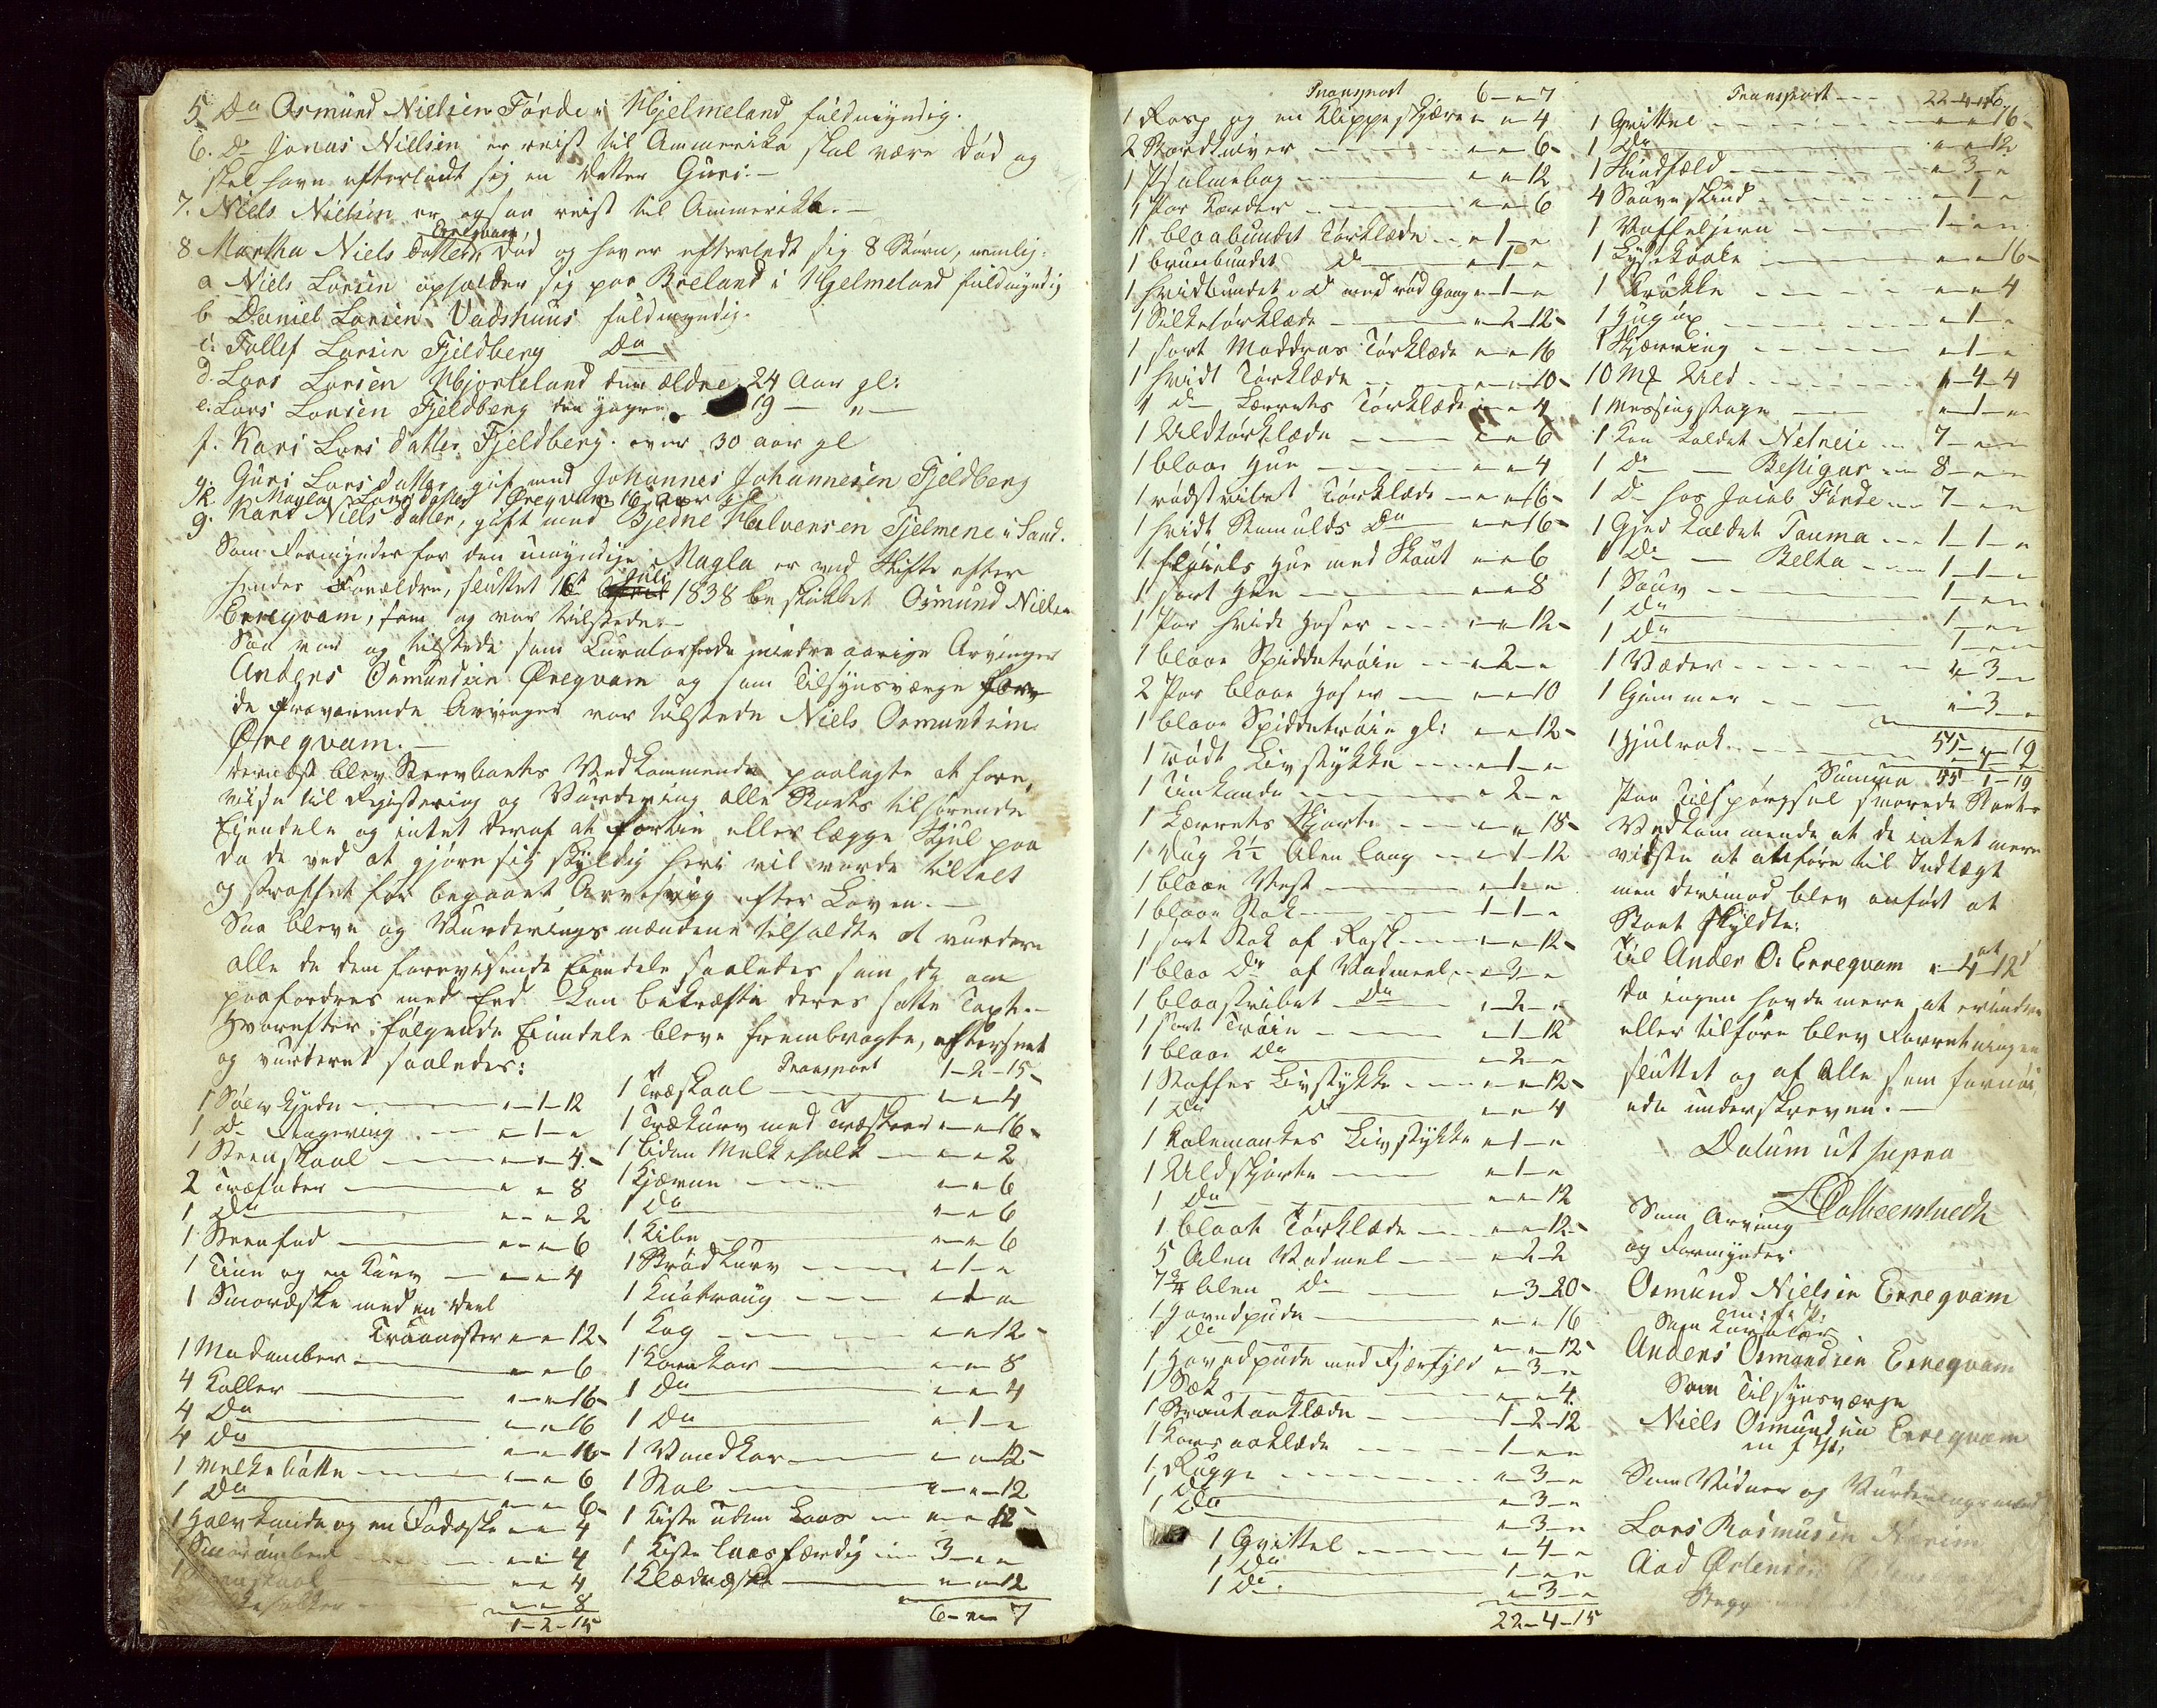 5 Do Osmund Nielsen Førde i Hjelmeland fuldmyndig.
6. Do Jonas Nielsen er reist til Ammerika skal være død og
skal have efterladt sig en datter Guri.—
7. Niels Nielsen er ogsaa reist til Ammerika.—
Erregvam
8 Martha Niels datter, død og haver efterladt sig 8 Børn, nemlig:
a Niels Larsen opholder sig paa Breland i Hjelmeland fuldmyndig
b Daniel Larsen Vadshuus fuldmyndig.
c. Tollef Larsen Fjeldberg Do
d. Lars Larsen Hjorteland den ældre 24 Aar gl:
e. Lars Larsen Fjeldberg den yngre 19 — " —
f. Kari Lars datter Fjeldberg. over 30 aar gl
g. Guri Lars datter gift med Johannes Johannesen Fjeldberg
h. Magla Lars datter Øregvam 16 aar gl
9. Kari Niels datter, gift med Bjedne Halvorsen Tjelmene i Sand.
Som Formynder for den umyndige Magla er ved Skifte efter
hendes Forældre, sluttet 16t Juli 1838 beskikket Osmund Nielsen
Erregvam, som og var tilstede.—
Saa var og tilstede som Kurator for de mindreaarige Arvinger
Anders Osmundsen Øregvam og som Tilsynsværge for
de fraværende Arvinger var tilstede Niels Osmundsen
Øregvam.—
dernæst blev Stervboets Vedkommende paalagte at fore-
vise til Registering og Vurdering alle Boets tilhørende
Eiendele og intet deraf at fortie eller lægge Skjul paa
da de ved at gjøre sig skyldig heri vil vorde tiltalt
og straffet for begaaet Arvesvig efter Loven.—
Saa bleve og Vurderingsmændene tilholdte at vurdere
alle de dem forevisende Eiendele saaledes som de om
paafordres med Eed kan bekræfte deres satte Taxt.—
Hvorefter følgende Eiendele bleve frembragte, efterseet
og vurderet saaledes:
1 Sølvkjede — " — 1 — 12
1 Do Fingering — " — 1 — "
1 Steenskaal — " — " — 4.
2 Træfader — " — " — 8
1 Do — " — " — 2
1 Steenfad — " — " — 6
1 Tine og en Kurv — " — " — 4
1 Smøræske med en deel
Traanester " — " — 12
1 Madamber — " — " — 6
4 Koller — " — " — 16
4 Do — " — " — 16
4 Do — " — " — 16
1 Melkebøtte — " — " — 6
1 Do — " — " — 6
1 Halvkande og en Fadæske " — " — 4
1 Smøramber — " — " — 4
" — " — 4
" — " — 8
1 — 2 — 15
Transport 1 — 2 — 15
1 Træskaal — " — " — 4
1 Trækurv med Træskeer " — " — 16
1 liden Melkeholk — " — " — 2
1 Kjærne — " — " — 6
1 Do — " — " — 6
1 Kibe — " — " — 6
1 Brødkurv — " — 1 — "
1 Knatraug — " — 1 — "
1 Kag — " — " — 12
1 Kornkar — " — " — 8
1 Do — " — " — 4
1 Do — " — 1 — "
1 Vandkar — " — " — 12
1 Stol — " — " — 12
1 Kiste uden Laas — " — " — 12
1 Kiste laasfærdig — 3 — " — "
1 Klædeæske — " — " — 12
6 — " — 7
Transport 6 — " — 7
1 Rasp og en Klippeskjære " — " — 4
2 Bordkniver — " — " — 6
1 Psalmebog — " — " — 12
1 Par Karder — " — " — 6
1 blaabundet Tørklæde — " — 1 — "
1 bruunbundet Do — " — 1 — "
1 hvidbundet Do med rød Gang " — 1 — "
1 Silketørklæde — " — 2 — 12
1 sort Maddras Tørklæde " — " — 16
1 hvidt Tørklæde — " — " — 10
1 do Lærrets Tørklæde " — " — 4
1 Uldtørklæde — " — " — 6
1 blaae Hue — " — " — 4
1 rødstribet Tørklæde — " — " — 16
1 hvidt Bomulds Do — " — " — 16
1 fløiels Hue med Skout " — " — 6
1 sort Hue — " — " — 8
1 Par hvide Hoser — " — " — 12
1 blaae Spiddetrøie — " — 2 — "
2 Par blaae Hoser — " — " — 10
1 blaae Spiddetrøie gl: " — " — 12
1 rødt Livstykke — " — 1 — "
1 Tinkande — " — 2 — "
1 Lærrets Skjorte — " — " — 18
1 Dug 2½ Alen lang — " — 1 — 12
1 blaae Vest — " — 1 — "
1 blaae Stak — 1 — 1 — "
1 sort Stak af Rask — " — " — 12
1 blaa Do af Vadmeel — " — 3 — "
1 blaastribet Do — " — 2 — "
1 sort Trøie — " — 1 — 12
1 blaae Do — " — 2 — "
1 Stoffes Livstykke — " — " — 12
1 Do Do — " — " — 4
1 Kalemankes Livstykke " — 1 — "
1 Uldskjorte — " — 1 — "
1 Do — " — " — 12
1 blaat Tørklæde — " — " — 12
5 Alen Vadmel — " — 2 — 2
7¾ Alen Do — " — 3 — 20
1 Hovedpude — " — " — 16
1 Do — " — " — 12
1 Hovedpude med Fjærfyld " — 3 — "
1 Sæk — " — " — 4
1 Brautaaklæde — 1 — 2 — 12
1 Korsaaklæde — 1 — " — "
1 Rugge — " — 3 — "
1 Do — " — 3 — "
1 Do — " — 3 — "
1 Gvittel — " — 4 — "
1 Do — 1 — " — "
1 Do. — " — 3 — "
22 — 4 — 15
Transport — 22 — 4 — 15
1 Gvittel — " — " — 16
1 Do — " — " — 12
1 Skindfæld — " — 3 — "
4 Saaveskind — " — 1 — "
1 Vaffeljern — 1 — " — "
1 Lysekaale — " — " — 16
1 Krakke — " — " — 4
1 Hugøx — " — 1 — "
1 Skjærring — " — 1 — "
10 Mk Uld — 1 — 4 — 4
1 Messingstage — " — 1 — "
1 Koe kaldet Netneie — 7 — " — "
1 Do — Bestigar — 8 — " — "
1 Do hos Jacob Førde — 7 — " — "
1 Gjed kaldet Tauma — 1 — 1 — "
1 Do — Belka — 1 — 1 — "
1 Sauv — 1 — " — "
1 Do — 1 — " — "
1 Do — 1 — " — "
1 Væder — " — 3 — "
1 Gimmer — " — 3 — "
1 Hjulrok —
55 — " — 19
Summa 55 1 — 19
Paa Tilspørgsel svarede Boets
Vedkommende at de intet mere
vidste at anføre til Indtægt
men derimod blev anført at
Boet skyldte:
Til Ander O: Erregvam " — 4 ort 12 s
da ingen havde mere at erindre
eller tilføre blev Forretningen
sluttet og af alle som fornøi-
ede underskreven.—
Datum ut supra
Som Arving
og Formynder
Osmund Nielsen Erregvam
m: f: P:
Som Kurator
Anders Osmundsen Erregvam
Som Tilsynsværge
Niels Osmundsen Erregvam
m f P:
Som Vidner og Vurderingsmænd
Lars Rasmusen
Aad Østensen